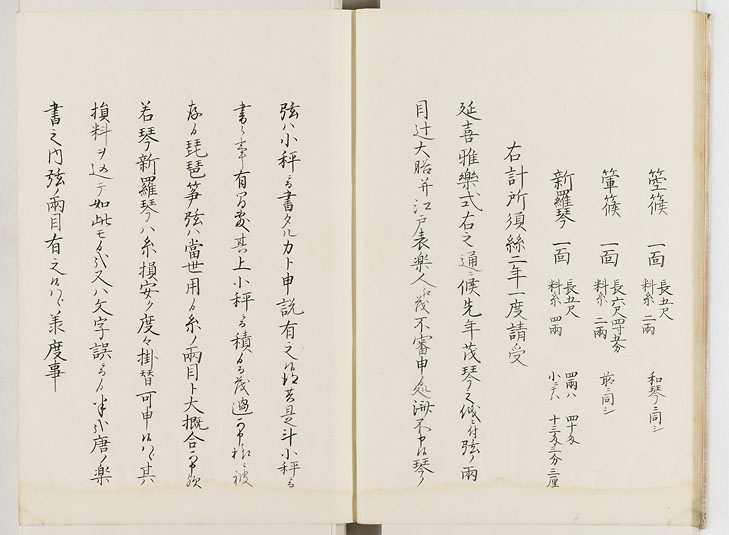 箜篌 一面 長五尺 料糸二兩 和琴ニ同シ
箜篌 一面 長六尺四寸五分 料糸二兩 前ニ同シ
新羅琴 一面 長五尺 料糸四兩 四兩ハ 四十匁 小ニテハ 十三匁三分三厘
右計所須絲二年一度請受
延喜雅樂式右之通ニ候先年茂琴之儀ニ付弦ノ兩
目辻大膳并江戸表楽人江茂不審申処済不申候琴ノ
弦ハ小秤ニ而書タルカト申説有之候得共是斗小秤ニ而
書候事有間敷其上小秤ニ而積候而茂過不申様ニ被
存候琵琶箏弦ハ當世用候糸ノ兩目ト大概合可申候
若琴新羅琴ハ糸損安ク度々掛替可申候ハヽ其
損料ヲ込テ如此モ候哉又ハ文字誤ニ而候半哉唐ノ樂
書之内弦ノ兩目有之候ハヽ羨度事